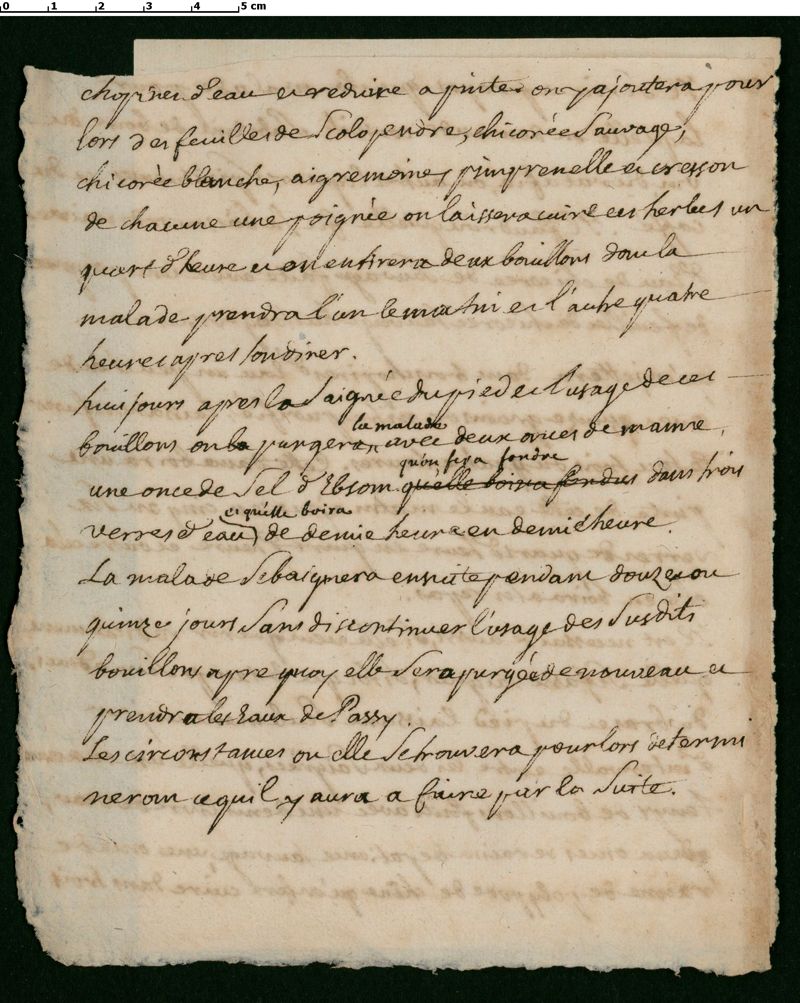 0 1 2 3 4 5 cm
chopines d'eau et reduire a pinte on y ajoutera pour
lors des feuilles de Scolopendre, chicorée Sauvage,
chicorée blanche, aigremoine, pimprenelle et cresson
de chacune une poignée on laissera cuire ces herbes un
quart d'heure et on en tirera deux bouillons dont la
malade prendra l'un le matin et l'autre quatre
heures apres son diner.
huit jours apres la Saignée du pied et l'usage de ces
la malade
bouillons on la purgera avec deux onces de manne,
qu'on fera fondre
une once de Sel d'Ebsom qu'elle boira fondus dans trois
et qu'elle boira
verres d'eau de demie heure en demie heure.
La malade Se baignera ensuite pendant douze ou
quinze jours Sans discontinuer l'usage des Susdits
bouillons apre quoy elle Sera purgée de nouveau et
prendra les Eaux de Passy.
Les circonstances ou elle Se trouvera pour lors determi
neront ce quil y aura a faire par la Suite.